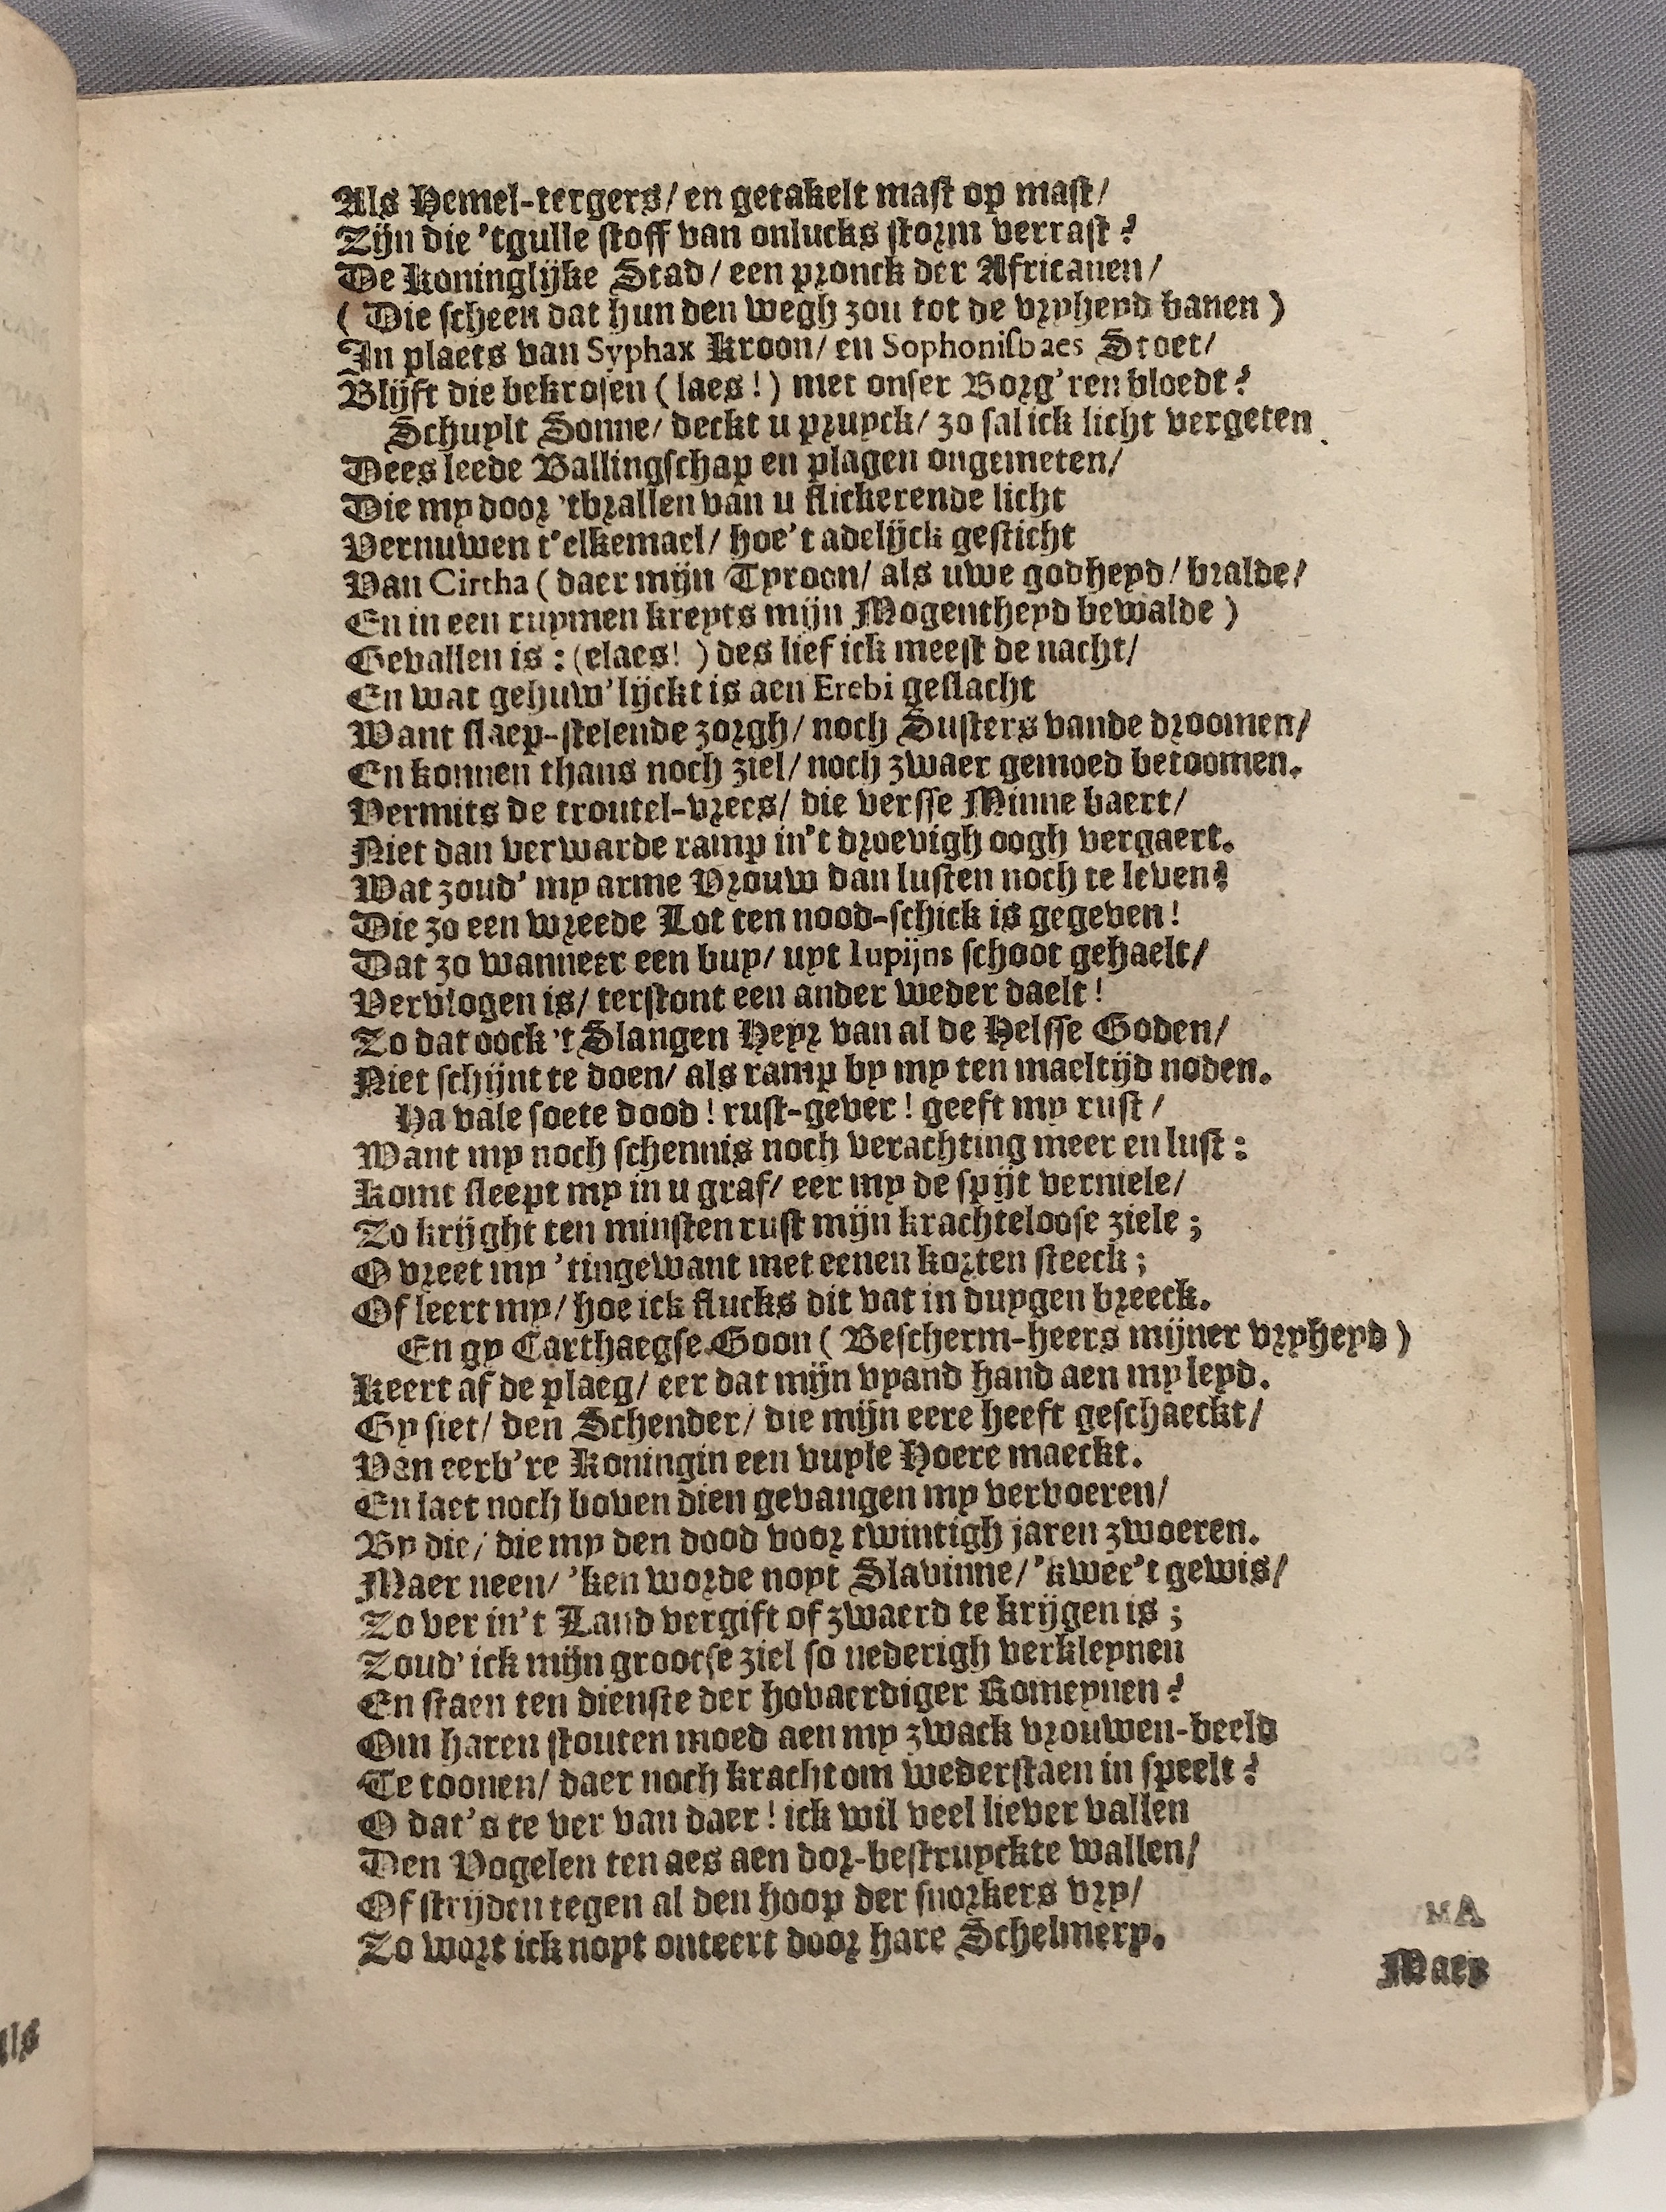 Als Hemel-tergers/ en getakelt mast op mast/
Zijn die 'tgulle stoff van onlucks storm verrast?
De Koninglijke Stad/ een pronck der Africanen/
( Die scheen dat hun den wegh zou tot de vryheyd banen )
In plaets van Syphax Kroon/ en Sophonisbaes Stoet/
Blijft die bekrosen ( laes! ) met onser Borg'ren bloedt?
Schuylt Sonne/ deckt u pruyck/ zo sal ick licht vergeten
Dees leede Ballingschap en plagen ongemeten/
Die my door 'tbrallen van u flickerende licht
Vernuwen t'elkemael/ hoe't adelijck gesticht
Van Cirtha ( daer mijn Tyroon/ als uwe godheyd/ bralde/
En in een ruymen kreyts mijn Mogentheyd bewalde )
Gevallen is : (elaes! ) des lief ick meest de nacht/
En wat gehuw'lijckt is aen Erebi geslacht
Want slaep-stelende zorgh/ noch Susters vande droomen/
En konnen thans noch ziel/ noch zwaer gemoed betoomen.
Vermits de troutel-vrees/ die versse Minne baert/
Niet dan verwarde ramp in't droevigh oogh vergaert.
Wat zoud' my arme Vrouw dan lusten noch te leven?
Die zo een wreede Lot ten nood-schick is gegeven!
Dat zo wanneer een buy/ uyt Iupijns schoot gehaelt/
Vervlogen is/ terstont een ander weder daelt!
Zo dat oock 't Slangen Heyr van al de Helsse Goden/
Niet schijnt te doen/ als ramp by my ten maeltijd noden.
Ha vale soete dood! rust-gever! geeft my rust/
Want my noch schennis noch verachting meer en lust:
Komt sleept my in u graf/ eer my de spijt verniele/
Zo krijght ten minsten rust mijn krachteloose ziele;
O vreet my 'tingewant met eenen korten steeck;
Of leert my/ hoe ick flucks dit vat in duygen breeck.
En gy Carthaegse Goon ( Bescherm-heers mijner vryheyd )
Keert af de plaeg/ eer dat mijn vyand hand aen my leyd.
Gy siet/ den Schender/ die mijn eere heeft geschaeckt/
Van eerb're Koningin een vuyle Hoere maeckt.
En laet noch boven dien gevangen my vervoeren/
By die/ die my den dood voor twintigh jaren zwoeren.
Maer neen/ 'ken worde noyt Slavinne/ 'kwee't gewis/
Zo ver in't Land vergift of zwaerd te krijgen is;
Zoud' ick mijn grootse ziel so nederigh verkleynen
En staen ten dienste der hovaerdiger Romeynen?
Om haren stouten moed aen my zwack vrouwen-beeld
Te toonen/ daer noch kracht om wederstaen in speelt?
O dat's te ver van daer! ick wil veel liever vallen
Den Vogelen ten aes aen dor-bestruyckte wallen/
Of strijden tegen al den hoop der snorkers vry/
Zo wort ick noyt onteert door hare Schelmery.
Maer